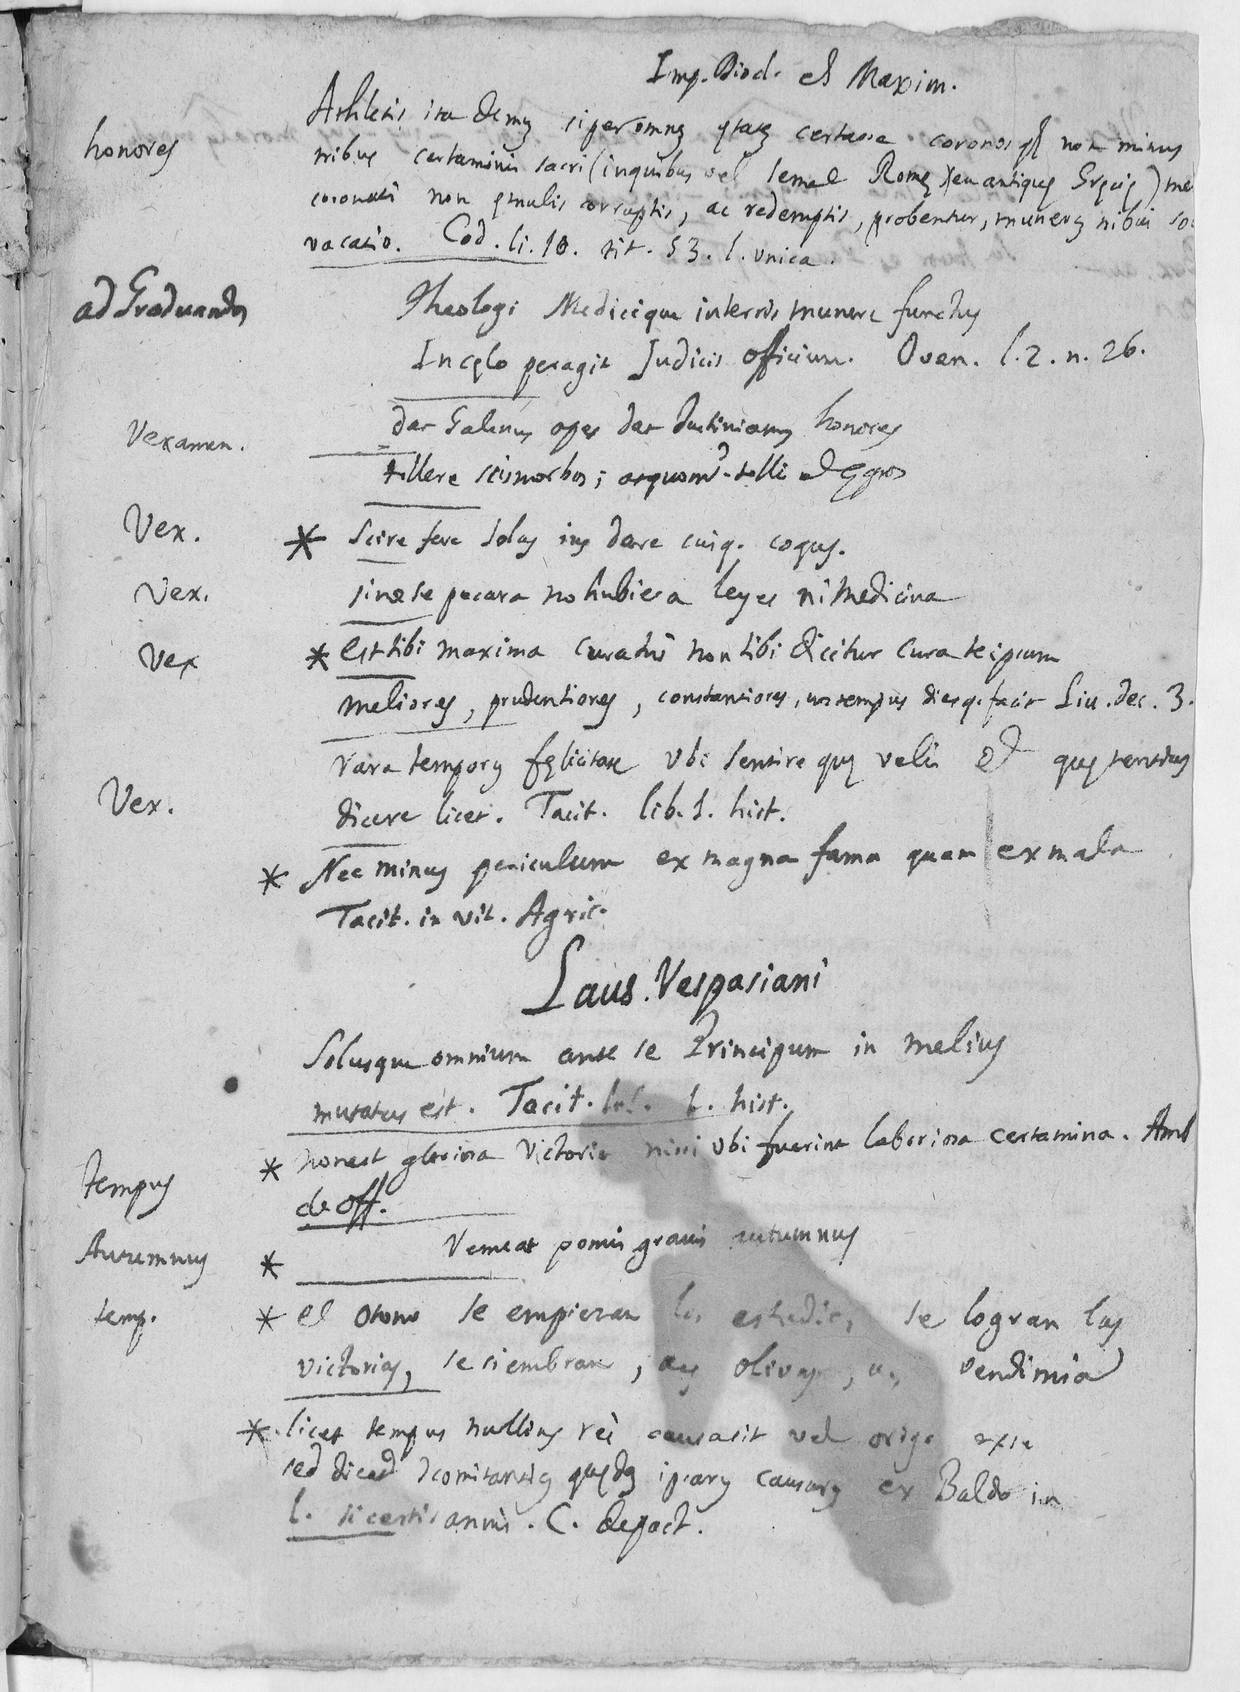 Imp. Diocl. et Maxim.
honores
Athletis ita demũ si per omnẽ ętatẽ certasse coronis qȝ non minus
tribus certaminis sacri (in quibus vel semel Romę seu antiquę Gręcię) me
coronati non ęmulis corruptis, ac redemptis, probentur, munerũ tribui so
vacatio. Cod. li. 10. tit. 53. l. unica.
ad Graduandos
Theologi Medicique in terris munere functus
In cęlo peragit Judicis officium. Oven. l. 2. n. 26.
Vexamen.
dat Galenus opes dat Justinianus honores
tollere scis morbos; tolli et ęgros
Vex.
* Scire fere solus ius dare cuiq. coquus.
Vex.
si no se pecara no hubiera leyes ni Medicina
Vex
* est tibi maxima non tibi dicitur cura te ipsum
meliores, prudentiores, constantiores, nos tempus diesq. facit Liu. dec. 3.
rara temporũ fęlicitate ubi sentire quę velis et quę sentias
Vex.
dicere licet. Tacit. lib. 1. hist.
* Nec minus periculum ex magna fama quam ex mala
Tacit. in vit. Agric.
Laus. Vespasiani
Solusque omnium ante se Principum in melius
mutatus est. Tacit. lib. 1. hist.
* non est gloriosa victoria nisi ubi fuerint laboriosa certamina. Amb
tempus
de off.
Autumnus
* Veniat pomis gravis autumnus
temp.
* el otono se empiezan los estudios, se logran las
victorias, se siembran, ay olivas, ay vendimia
* licet tempus nullius rei causa sit vel origo ex se
sed dicat comitantiã quędã ipsarũ causarũ ex Baldo in
l. si certis annis. C. de pact.